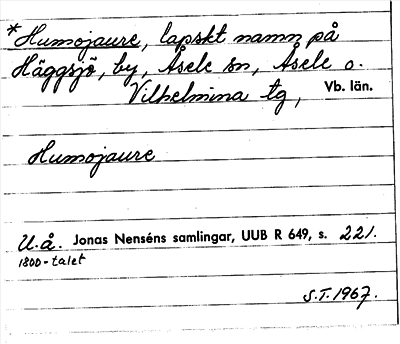 *Humojaure, lapskt namn på
Häggsjö, by, Åsele sn, Åsele o.
Vilhelmina tg, Vb. län.
Humojaure
U.å. Jonas Nenséns samlingar, UUB R 649, s. 221.
1800-talet
S.T. 1967.